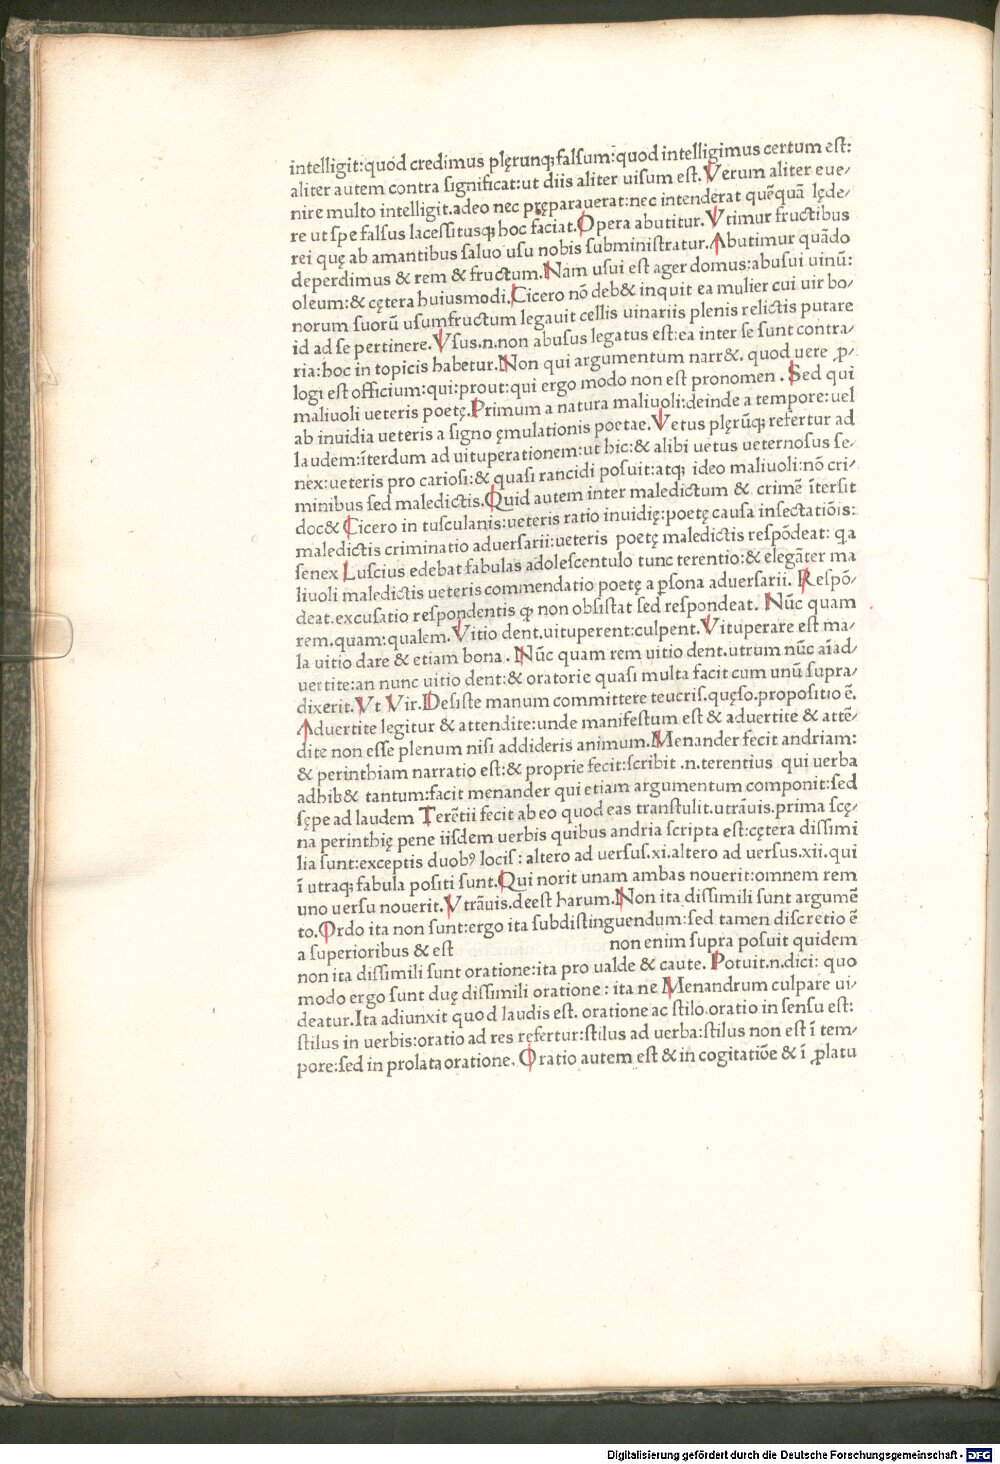 intelligit:quod credimus plęrunqꝫ falſum:quod intelligimus certum eſt:
aliter autem contra ſignificat:ut diis aliter uiſum eſt.Verum aliter eue/
nire multo intelligit.adeo nec pręparauerat:nec intenderat quēquā lęde/
re ut ſpe falſus laceſſitusqꝫ hoc faciat.Opera abutitur.Vtimur fructibus
rei quę ab amantibus ſaluo uſu nobis ſubminiſtratur.Abutimur quādo
deperdimus & rem & fructum.Nam uſui eſt ager domus:abuſui uinū:
oleum:& cętera huiusmodi.Cicero nō deb& inquit ea mulier cui uir bo/
norum ſuorū uſumfructum legauit cellis uinariis plenis relictis putare
id ad ſe pertinere.Vſus.n.non abuſus legatus eſt:ea inter ſe ſunt contra/
ria:hoc in topicis habetur.Non qui argumentum narr&. quod uere ꝓ/
logi eſt officium:qui:prout:qui ergo modo non eſt pronomen . Sed qui
maliuoli ueteris poetę.Primum a natura maliuoli:deinde a tempore:uel
ab inuidia ueteris a ſigno ęmulationis poetae.Vetus plęrūqꝫ refertur ad
laudem:īterdum ad uituperationem:ut hic:& alibi uetus ueternoſus ſe/
nex:ueteris pro carioſi:& quaſi rancidi poſuit:atqꝫ ideo maliuoli:nō cri/
minibus ſed maledictis.Quid autem inter maledictum & crimē īterſit
doc& Cicero in tuſculanis:ueteris ratio inuidię:poetę cauſa inſectatiōis:
maledictis criminatio aduerſarii:ueteris poetę maledictis reſpōdeat: q̄a
ſenex Luſcius edebat fabulas adoleſcentulo tunc terentio:& elegāter ma
liuoli maledictis ueteris commendatio poetę a ꝑſona aduerſarii. Reſpō/
deat.excuſatio reſpondentis ꝙ non obſiſtat ſed reſpondeat. Nūc quam
rem.quam:qualem.Vitio dent.uituperent:culpent.Vituperare eſt ma/
la uitio dare & etiam bona . Nūc quam rem uitio dent.utrum nūc aīad/
uertite:an nunc uitio dent:& oratorie quaſi multa facit cum unū ſupra/
dixerit.Vt Vir.Deſiſte manum committere teucris.quęſo.propoſitio ē.
Aduertite legitur & attendite:unde manifeſtum eſt & aduertite & attē/
dite non eſſe plenum niſi addideris animum.Menander fecit andriam:
& perinthiam narratio eſt:& proprie fecit:ſcribit .n.terentius qui uerba
adhib& tantum:facit menander qui etiam argumentum componit:ſed
ſępe ad laudem Terētii fecit ab eo quod eas tranſtulit.utrāuis.prima ſcę/
na perinthię pene iiſdem uerbis quibus andria ſcripta eſt:cętera diſſimi
lia ſunt:exceptis duobꝰ locis : altero ad uerſus.xi.altero ad uerſus.xii. qui
ī utraqꝫ fabula poſiti ſunt.Qui norit unam ambas nouerit:omnem rem
uno uerſu nouerit.Vtrāuis.deeſt harum.Non ita diſſimili ſunt argumē
to.Ordo ita non ſunt:ergo ita ſubdiſtinguendum:ſed tamen diſcretio ē
a ſuperioribus & eſt non enim ſupra poſuit quidem
non ita diſſimili ſunt oratione:ita pro ualde & caute. Potuit.n.dici: quo
modo ergo ſunt duę diſſimili oratione : ita ne Menandrum culpare ui/
deatur.Ita adiunxit quod laudis eſt. oratione ac ſtilo.oratio in ſenſu eſt:
ſtilus in uerbis:oratio ad res refertur:ſtilus ad uerba:ſtilus non eſt ī tem/
pore:ſed in prolata oratione. Oratio autem eſt & in cogitatiōe & ī ꝓlatu
Digitalisierung gefördert durch die Deutsche Forschungsgemeinschaft - DFG